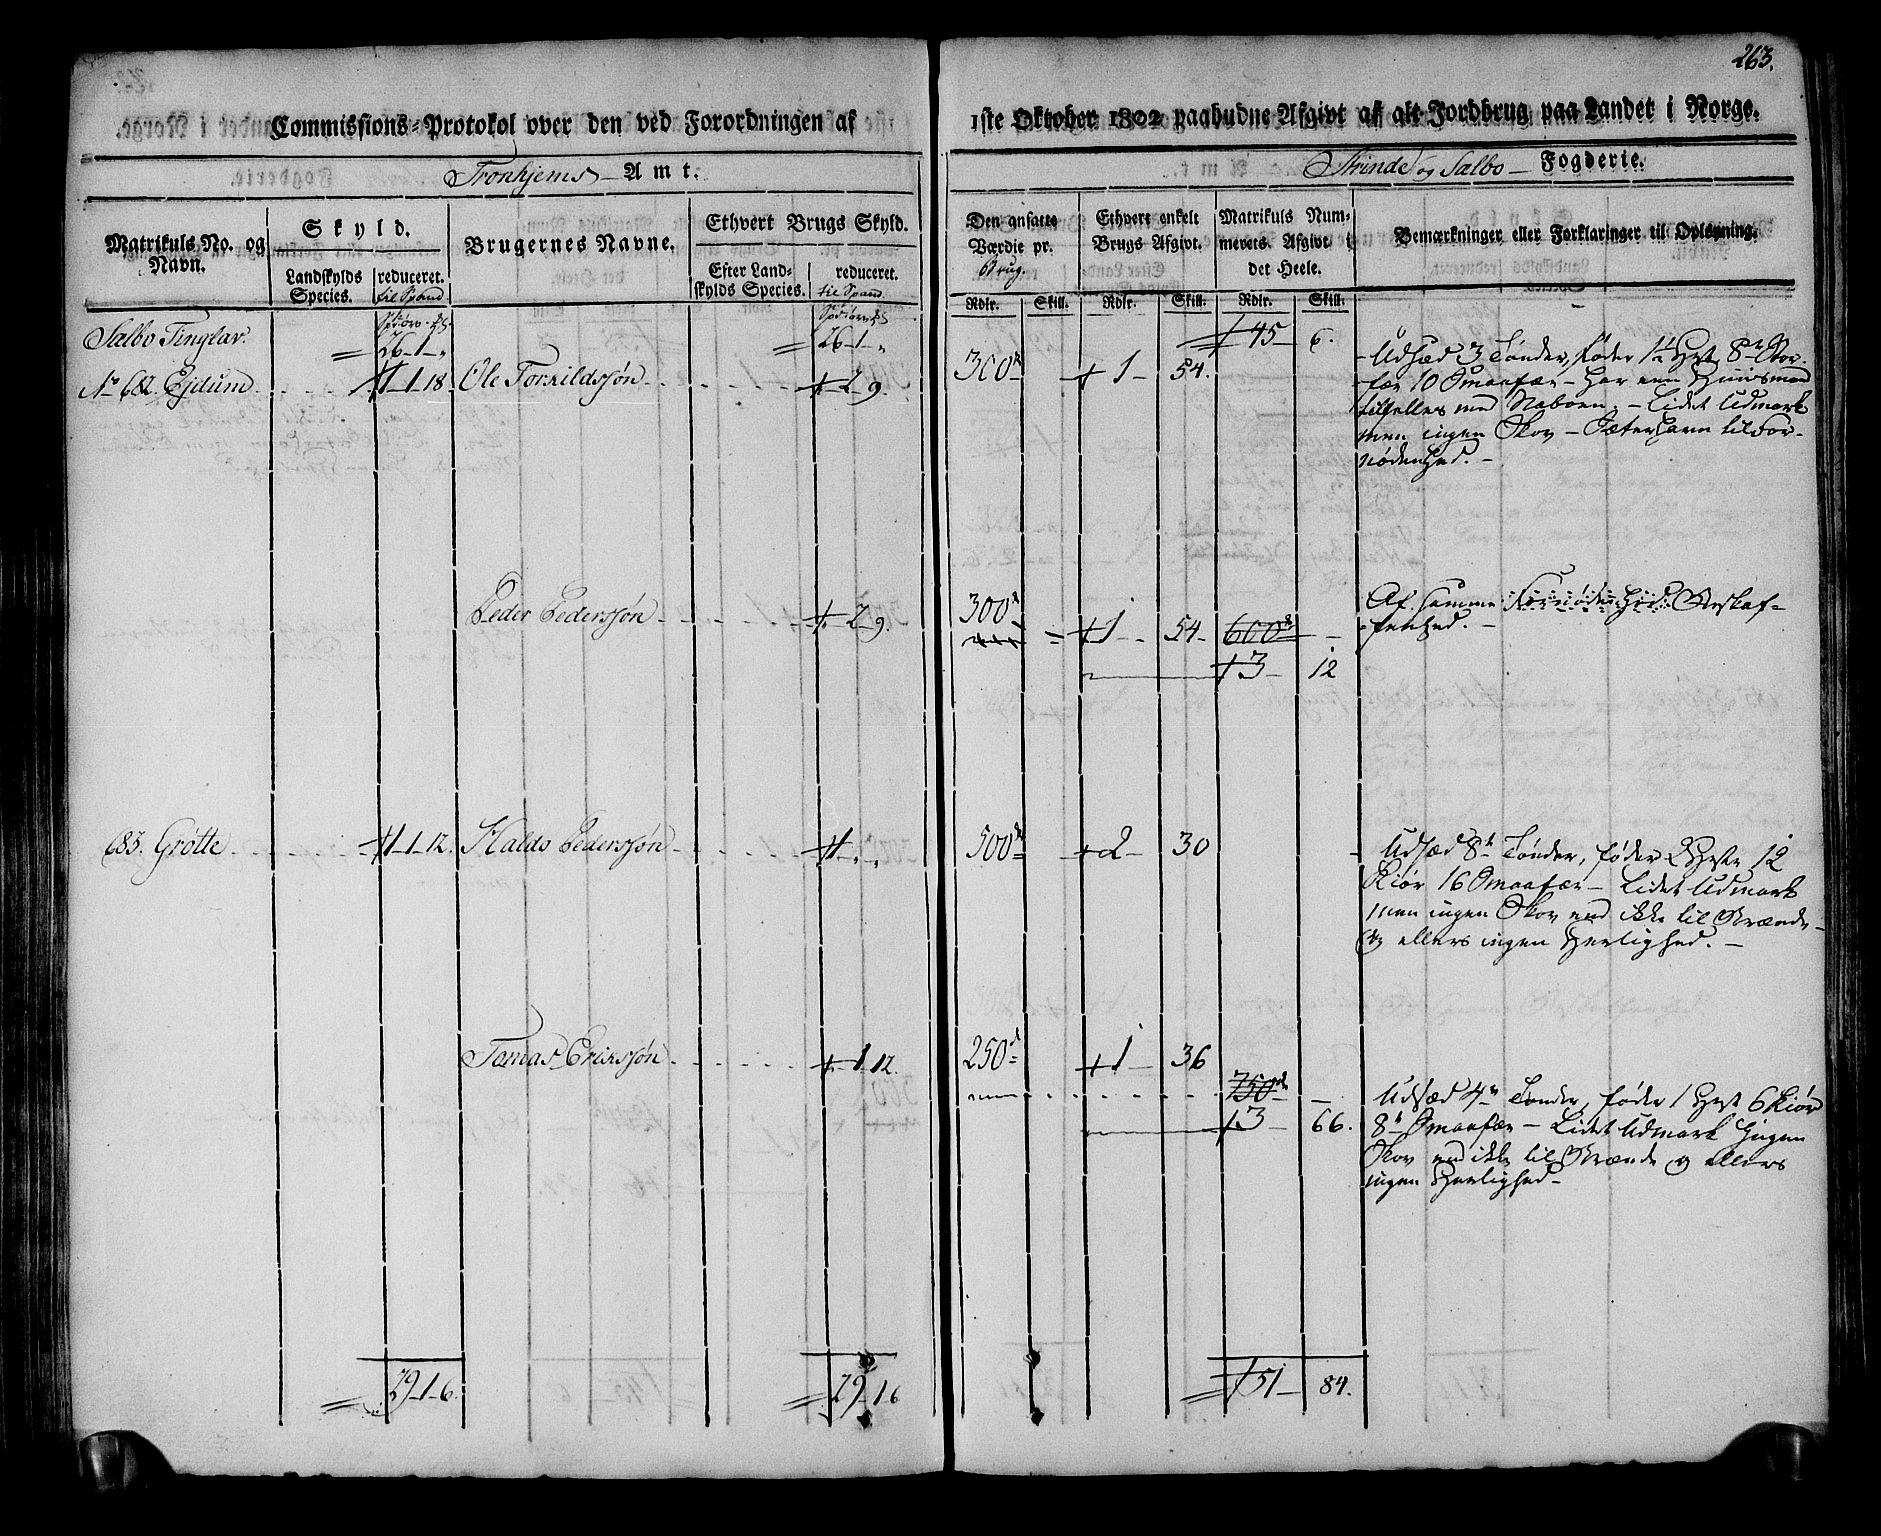 263.
Commissions=Protokol over den ved Forordningen af 1ste Oktober 1802 paabudne Afgivt af alt Jordbrug paa Landet i Norge.
Tronhjems Amt. Strinde og Sælbo Fogderie.
Matrikuls No. og Navn.
Skyld.
Landskylds Species.
reduceret. til Spand
Brugernes Navne.
Ethvert Brugs Skyld.
Efter Landskylds Species.
reduceret. til Spand.
Den ansatte Værdie pr. Brug.
Ethvert enkelt Brugs Afgivt.
Matrikuls Nummerets Afgivt i det Heele.
Bemærkninger eller Forklaringer til Oplysning.
Rdlr. Skill. Rdlr. Skill. Rdlr. Skill.
Sælbo Tinglav. 26-1-„ 26-1-„ 45- 6.
No 682. Ejdum 1-1-18 Ole Torkildssøn 2 9 300 1- 54.
Udsæd 3 Tønder, føder 1½ Hest 8
10 Smaafæ - har een Huusmand
tilfælles med Naboen. - Lidet Udmark
men ingen Skov - Sæterhavn til For-
nødenhed. -
Peder Pederssøn 2 9. 300 1- 54- 600 -
3- 12
Af samme Beskaf-
fenhed. -
683. Grøtte 1-1-12. Halds Pederssøn 1 „ „ 500 2- 30
Udsæd 8 Tønder, føder 2 Heste 12
Kiør 16 Smaafæ - Lidet Udmark
men ingen Skov end ikke til Brænde
og ellers ingen Herlighed. -
Tomas Erikssøn 1 12. 250 1- 36
750 -
3- 66.
Udsæd 4 Tønder, føder 1 Hest 6 Kiør
8 Smaafæ - Lidet Udmark ingen
Skov end ikke til Brænde og ellers
ingen Herlighed -
29-1-6. 29-1 6 51- 84.